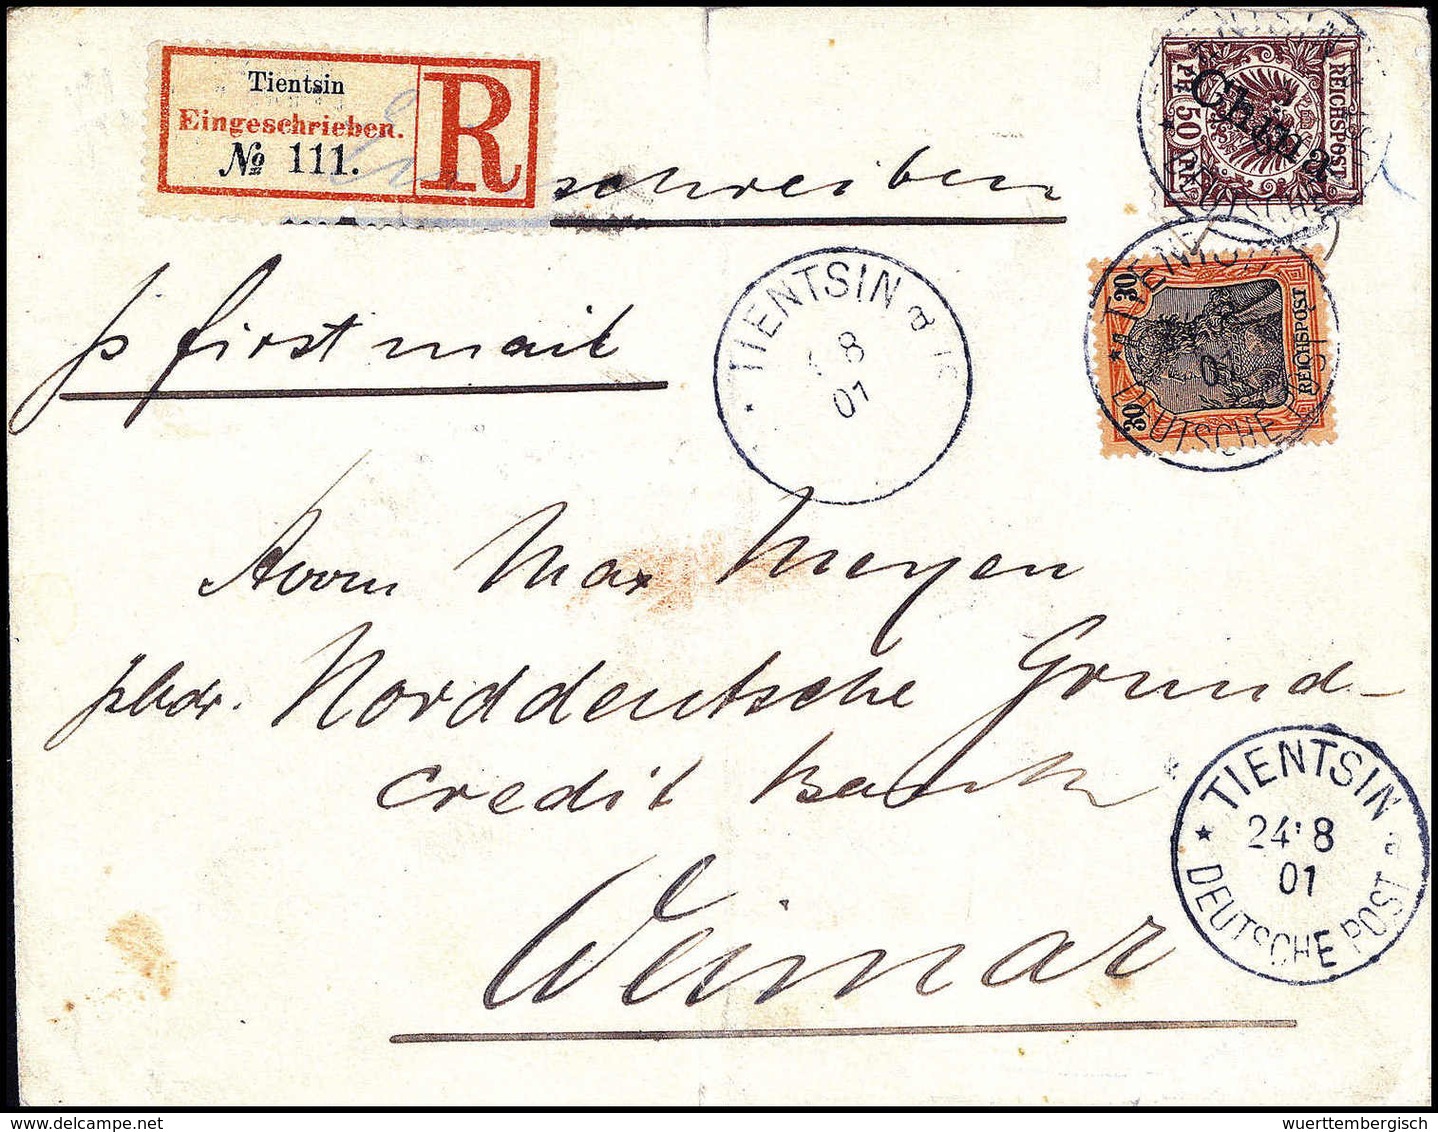 Tientsin
Eingeschrieben.
№ 111.
R
schreiben
p first mail
China
REICHSPOST
50 50
PF PF
30 30
REICHSPOST
TIENTSIN
DEUTSCHE POST
01
TIENTSIN a
8
01
Herrn Max Meyen
Norddeutsche Grund-
credit Bank
Weimar
TIENTSIN a
24 8
01
DEUTSCHE POST
wuerttembergisch